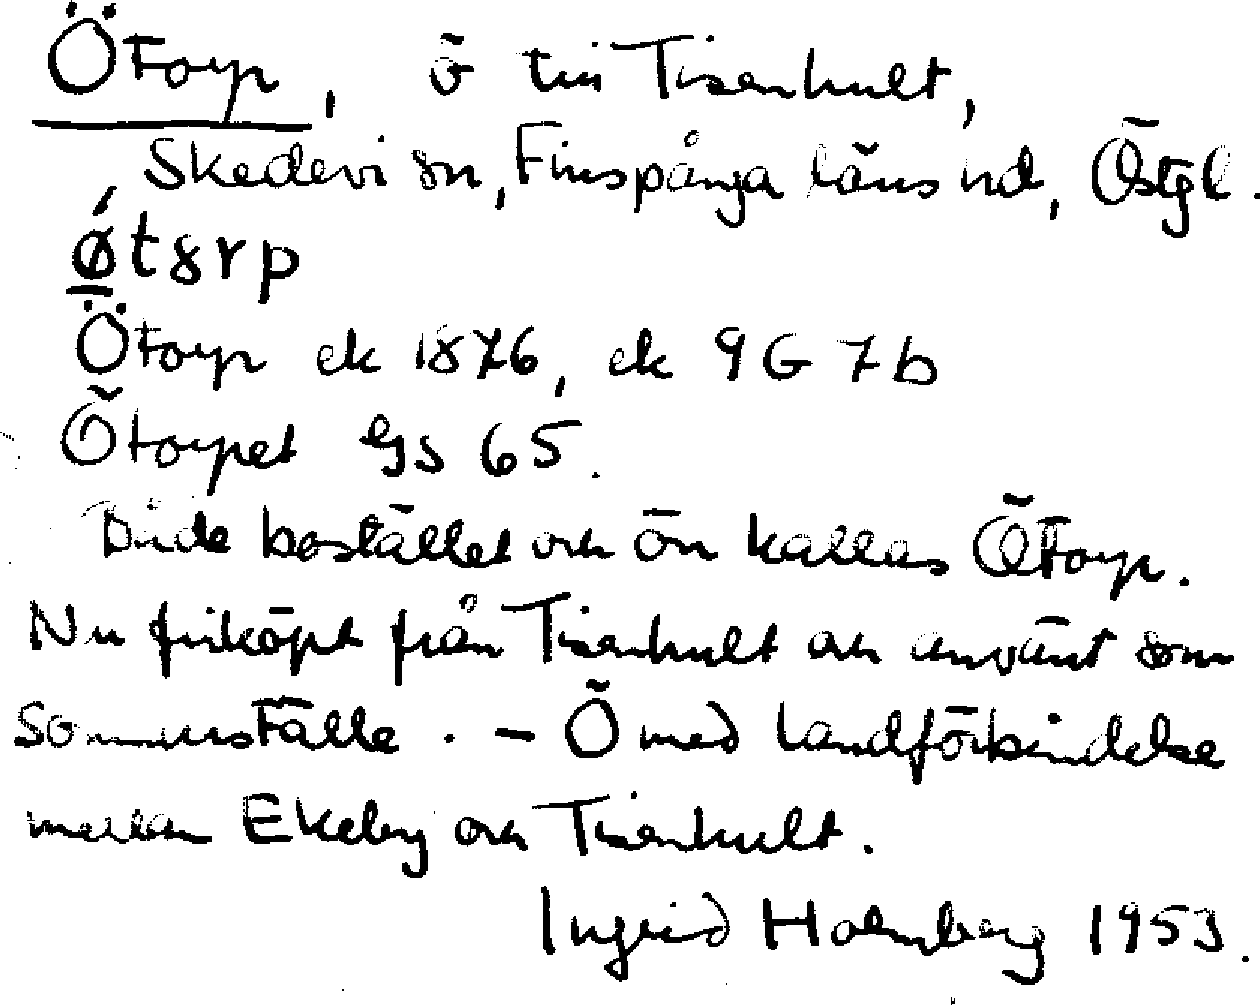 Ötorp, ö till Tisenhult,
Skedevi sn, Finspånga läns hd, Östgl.
ǿtȣrp
Ötorp ek 1876, ek 9G 7b
Ötorpet GS 65.
Både bostället och ön kallas Ötorp.
Nu friköpt från Tisenhult och använt som
sommarställe. - Ö med landförbindelse
mellan Ekeby och Tisenhult.
Ingrid Holmberg 1953.